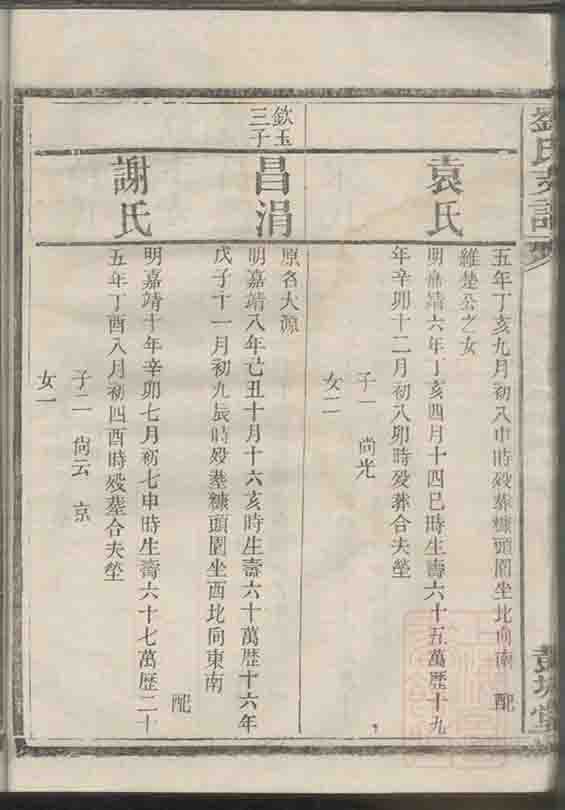 劉氏支譜
彭城堂
五年丁亥九月初八申時殁葬糠頭園坐北向南 配
袁氏
維楚公之女
明嘉靖六年丁亥四月十四巳時生壽六十五萬歷十九
年辛卯十二月初八卯時殁葬合夫塋
子一 尙光
女二
欽玉
三子
昌涓
原名大源
明嘉靖八年己丑十月十六亥時生壽六十萬歷十六年
戊子十一月初九辰時殁葬糠頭園坐西北向東南 配
謝氏
明嘉靖十年辛卯七月初七申時生壽六十七萬歷二十
五年丁酉八月初四酉時殁葬合夫塋
子二 尙云 京
女一